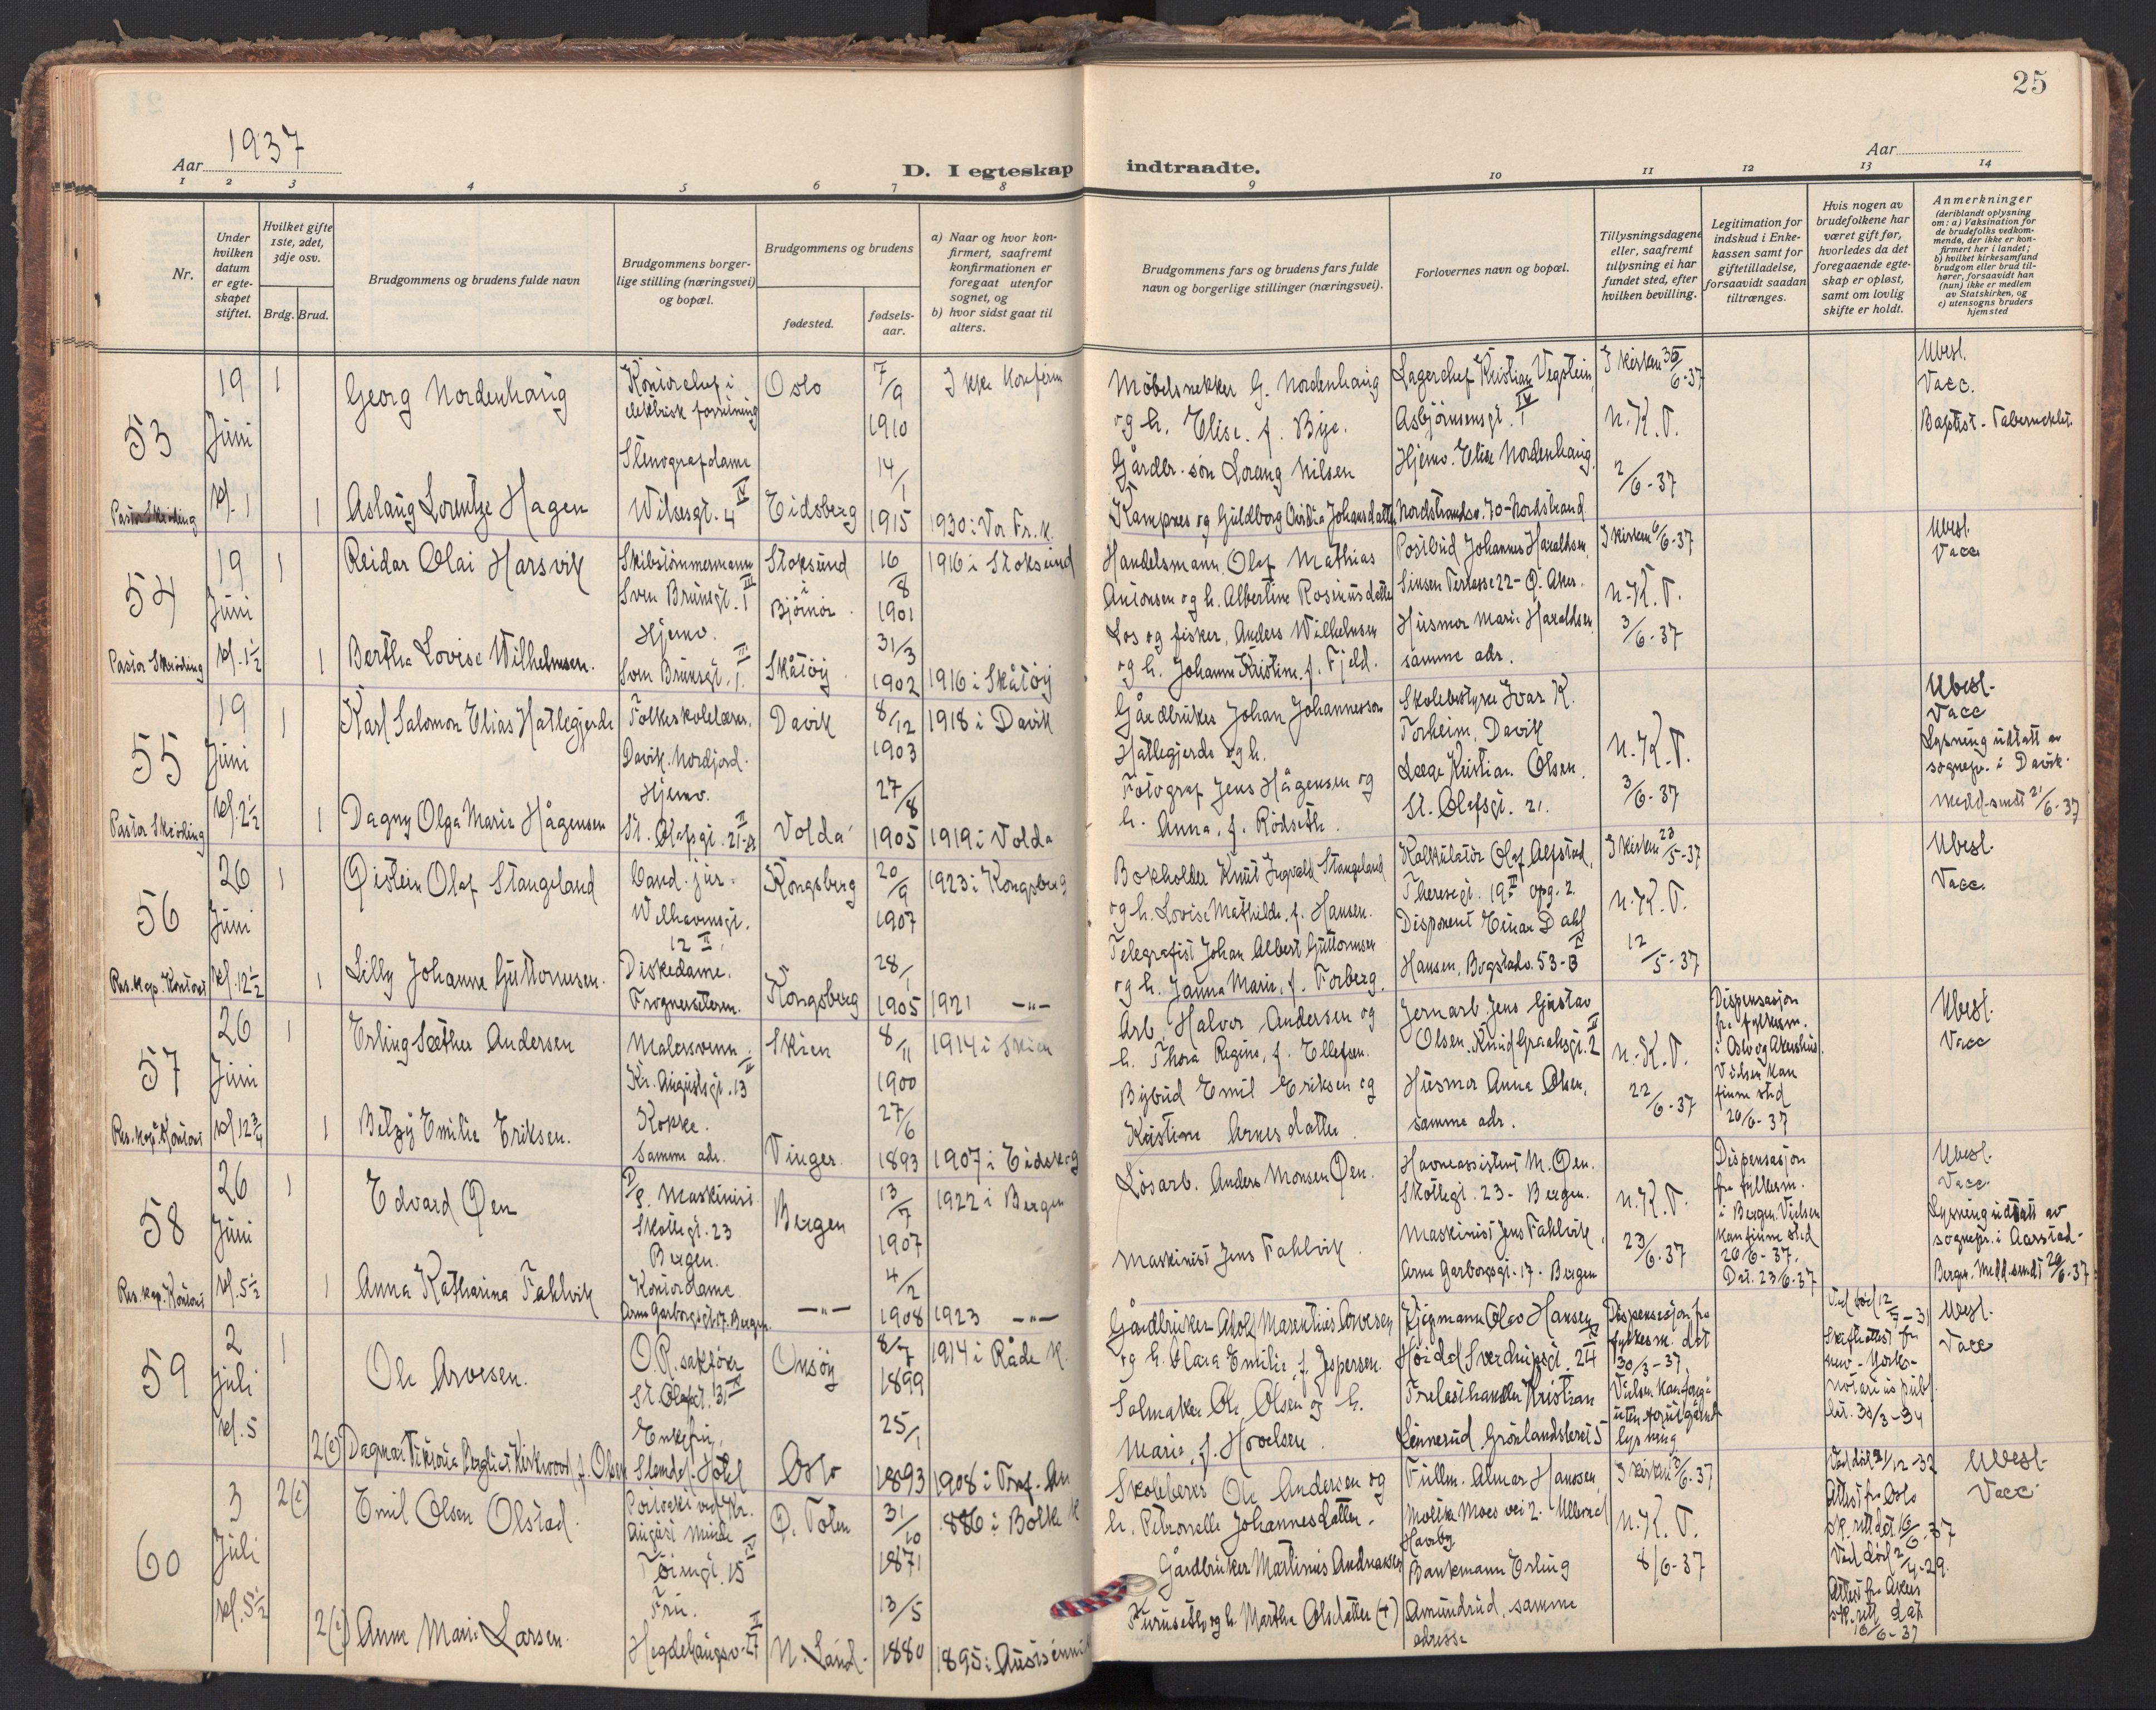 25
Aar 1937
Aar
D. I egteskap indtraadte.
1 2 3 4 5 6 7 8 9 10 11 12 13 14
Nr.
Under hvilken datum er egteskapet stiftet.
Hvilket gifte 1ste, 2det, 3dje osv.
Brdg. Brud.
Brudgommens og brudens fulde navn
Brudgommens borgerlige stilling (næringsvei) og bopæl.
Brudgommens og brudens
fødested.
fødsels-aar.
a) Naar og hvor konfirmert, saafremt konfirmationen er foregaat utenfor sognet, og
b) hvor sidst gaat til alters.
Brudgommens fars og brudens fars fulde navn og borgerlige stillinger (næringsvei).
Forlovernes navn og bopæl.
Tillysningsdagene eller, saafremt tillysning ei har fundet sted, efter hvilken bevilling.
Legitimation for indskud i Enkekassen samt for giftetilladelse, forsaavidt saadan tiltrænges.
Hvis nogen av brudefolkene har været gift før, hvorledes da det foregaaende egteskap er opløst, samt om lovlig skifte er holdt.
Anmerkninger
(deriblandt oplysning om: a) Vaksination for de brudefolks vedkommende, der ikke er konfirmert her i landet; b) hvilket kirkesamfund brudgom eller brud tilhører, forsaavidt han (hun) ikke er medlem av Statskirken, og c) utensogns bruders hjemsted
53
19 Juni kl. 1
1
Georg Nordenhaug
Kontorchef i elektrisk forretning
Oslo
7/9 1910
Ikke konfirm
Møbelsnekker G. Nordenhaug og h. Elise f. Bye.
Lagerchef Kristian Vegstein, Asbjørnsensgt. 1 IV
I kirken 6-37
N.K.T.
2/6-37
Ubesl.
Vacc.
Baptist-Tabernaklet.
Pastor Skjeding
1
Aslaug Lorentze Hagen
Stenografdame
Wilsesgt. 4 IV
Eidsberg
14/1 1915
1930 i Vor Fr. k.
Gårdbr. søn Lorang Nilsen Kampnes og Guldborg Johansdatter
Hjemv. Elise Nordenhaug, Nordstrandsv. 70-Nordstrand
54
19 Juni kl. 1½
1
Reidar Olai Harsvik
Skibstømmermann
Sven Brunsgt. 1 III
Stoksund i Bjørnør
16/8 1901
1916 i Stoksund
Handelsmann, Olaf Mathias Antonsen og h. Albertine Rosinusdatter
Postbud Johannes Haraldsen, Sinsen Terrasse 22-Ø. Aker.
I kirken 6/6-37
N.K.T.
3/6-37
Ubesl.
Vacc
Pastor Skjeding
1
Bertha Lovise Wilhelmsen.
Hjemv.
Sven Brunsgt. 1 III
Skåtøy
31/3 1902
1916 i Skåtøy
Los og fisker, Anders Wilhelmsen og h. Johanne Kristine, f. Fjeld.
Husmor Marie Haraldsen, samme adr.
55
19 Juni kl. 2½
1
Karl Salomon Elias Hatlegjerde
Folkeskolelærer,
Davik. Nordfjord.
Davik
8/12 1903
1918 i Davik
Gårdbruker Johan Johannessen Hatlegjerde og h.
Skolebestyrer Ivar K. Torheim, Davik
N.K.T.
3/6-37
Ubesl.
Vacc
Lysning utstatt av sognepr. i Davik.
Medd. sendt 21/6-37
Pastor Skjeding
1
Dagny Olga Marie Hågensen
Hjemv.
St. Olafsgt. 21 II
Volda
27/8 1905
1919 i Volda
Fotograf Jens Hågensen og h. Anna, f. Rødseth.
Læge Kristian Olsen. St. Olafsgt. 21.
56
26 Juni kl. 12½
1
Øistein Olaf Stangeland
Cand. jur.
Welhavensgt. 12 II.
Kongsberg
20/9 1907
1923 i Kongsberg
Bokholder Knut Ingvald Stangeland og h. Lovise Mathilde, f. Hansen.
Kalkulatør Olaf Alfstad, Theresegt. 19 II opg. 2.
I kirken 23/5-37
N.K.T.
12/5-37
Ubesl.
Vacc.
Res. kap. Kontoret
1
Lilly Johanne Guttormsen.
Diskedame.
Frognerseteren.
Kongsberg
28/1 1905
1921 —"—
Telegrafist Johan Albert Guttormsen og h. Janna Marie, f. Forberg.
Disponent Einar Dahl Hansen, Bogstadv. 53-B
57
26 Juni kl 12¾
1
Erling Sæther Andersen
Malersvenn
Kr. Augustsgt. 13 IV
Skien
8/11 1900
1914 i Skien
Arb. Halvor Andersen og h. Thora Regine, f. Ellefsen.
Jernarb. Jens Gustav Olsen. Knud Graahsgt. 2 II
N.K.T.
22/6-37
Dispensasjon fra fylkesm. i Oslo og Akershus. Vielsen kan finne sted 26/6-37
Ubesl.
Vacc
Res. kap. Kontoret
1
Betzy Emilie Eriksen.
Kokke.
Samme adr.
Vinger.
27/6 1893
1907 i Eidskog
Bybud Emil Eriksen og Kristine Arnesdatter.
Husmor Anna Olsen, samme adr.
58
26 Juni kl. 5½
1
Edvard Øen
Maskinist
Skottegt. 23
Bergen.
Bergen
13/7 1907
1922 i Bergen
Løsarb. Anders Monsen Øen.
Havneassistent M. Øen. Skottegt. 23 - Bergen.
N.K.T.
23/6-37
Dispensasjon fra fylkesm. i Bergen. Vielsen kan finne sted 26/6-37. Dat. 23/6-37
Ubesl.
Vacc.
Lysning utstatt av sognepr. i Aarstad-Bergen. Medd. sendt 29/6-37
Res. kap. Kontoret
1
Anna Katharina Fahlvik
Kontordame
Arne Garborgsgt. 17. Bergen.
—"—
4/2 1908
1923 —"—
Maskinist Jens Fahlvik.
Maskinist Jens Fahlvik, Arne Garborgsgt. 17. Bergen
59
2 Juli kl. 5
1
Ole Arvesen.
O.R. sakfører
St. Olafsgt. 31 IV
Onsøy
8/7 1899
1914 i Råde k.
Gårdbruker Adolf Marentius Arvesen og h. Clara Emilie, f. Jespersen.
Vigmann Olav Hansen, Sverdrupsgt. 24
Dispensasjon fra fylkesm. dat 30/3-37. Vielsen kan foregå uten forutgående lysning
Ved død 12/7-31
Skifteattest fra New-York-notarius publ. dat. 30/3-34
Ubesl.
Vacc
2(e)
Dagmar Viktoria Bergliot Kirkwood, f. Olsen
Enkefru,
Slemdal Hotel
Oslo
25/1 1893
1908 i Tref. k
Salmaker Ole Olsen og h. Marie, f. Hovelsen.
Trelasthandler Kristian Linnerud. Grønlandsleret 5
60
3 Juli kl. 5½
2(e)
Emil Olsen Olstad.
Portvakt ved Kr. August Minde
Tøiengt. 15 IV
Ø. Toten
31/10 1871
1886 i Bolke k
Skolelærer Ole Andersen og h. Petronelle Johannesdatter.
Fullm. Almar Hanssen, Moltke Moes vei 2. Ullevål Haveby
I kirken 13/6-37
N.K.T.
8/6-37
Ved død 31/12-32
Attest fra Oslo sk. rett dat. 16/6-37
Ved død 2/4-29.
Attest fra Akers sk. rett dat. 16/6-37
Ubesl.
Vacc.
2(e)
Anne Marie Larsen.
Fru.
Hegdehaugsv. 27 II
N. Land.
13/5 1880
1895 i Austsinni
Gårdbruker Martinius Andreassen Furuseth og h. Marthe Olsdatter (+)
Bankmann Erling Amundrud, samme adresse